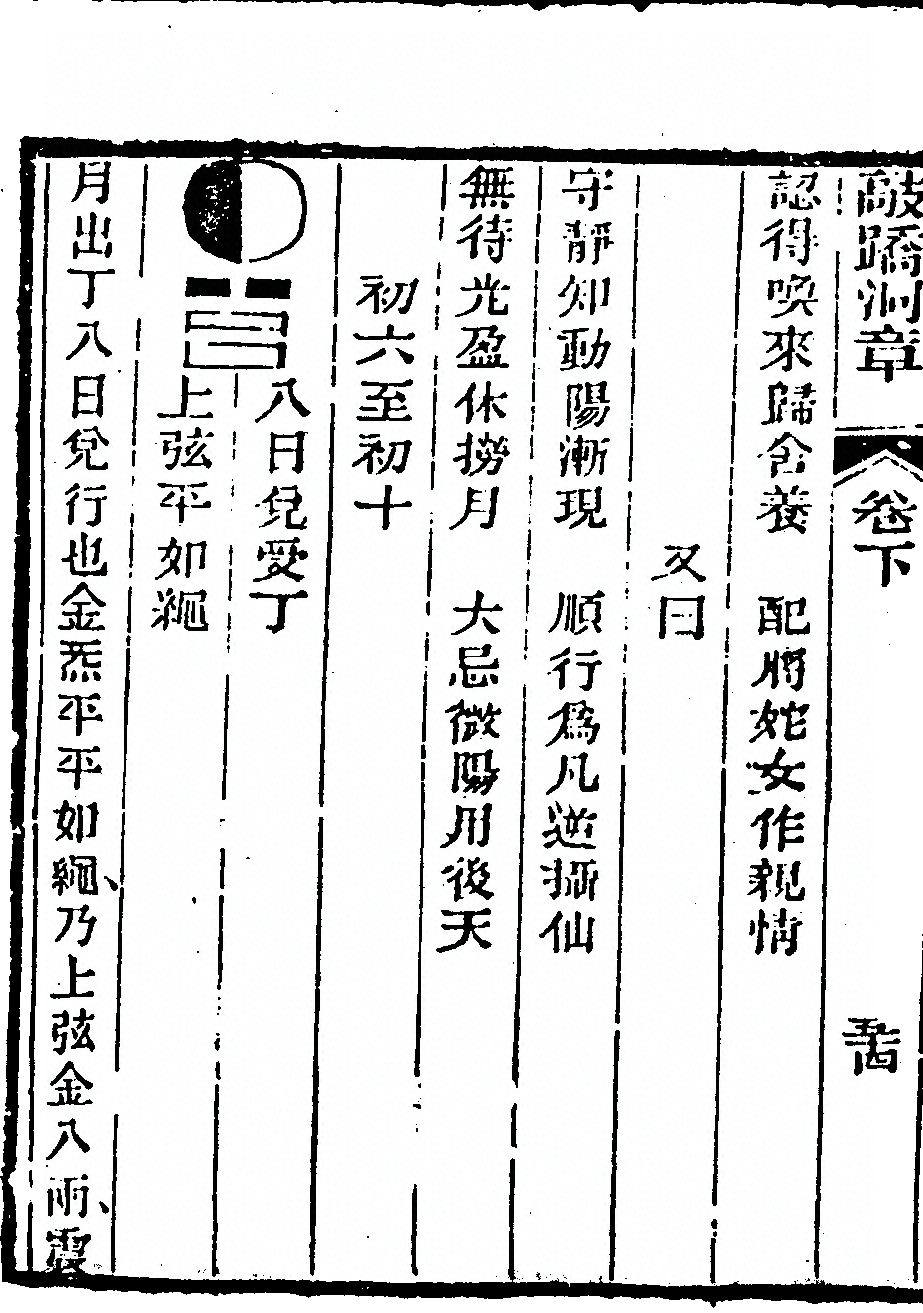 敲蹻洞章 卷下 五十四
認得喚來歸舍養 配將姹女作親情
又曰
守靜知動陽漸現 順行爲凡逆攝仙
無待光盈休撈月 大忌微陽用後天
初六至初十
八日兌受丁
上弦平如繩
月出丁八日兌行也金炁平平如繩、乃上弦金八兩、震